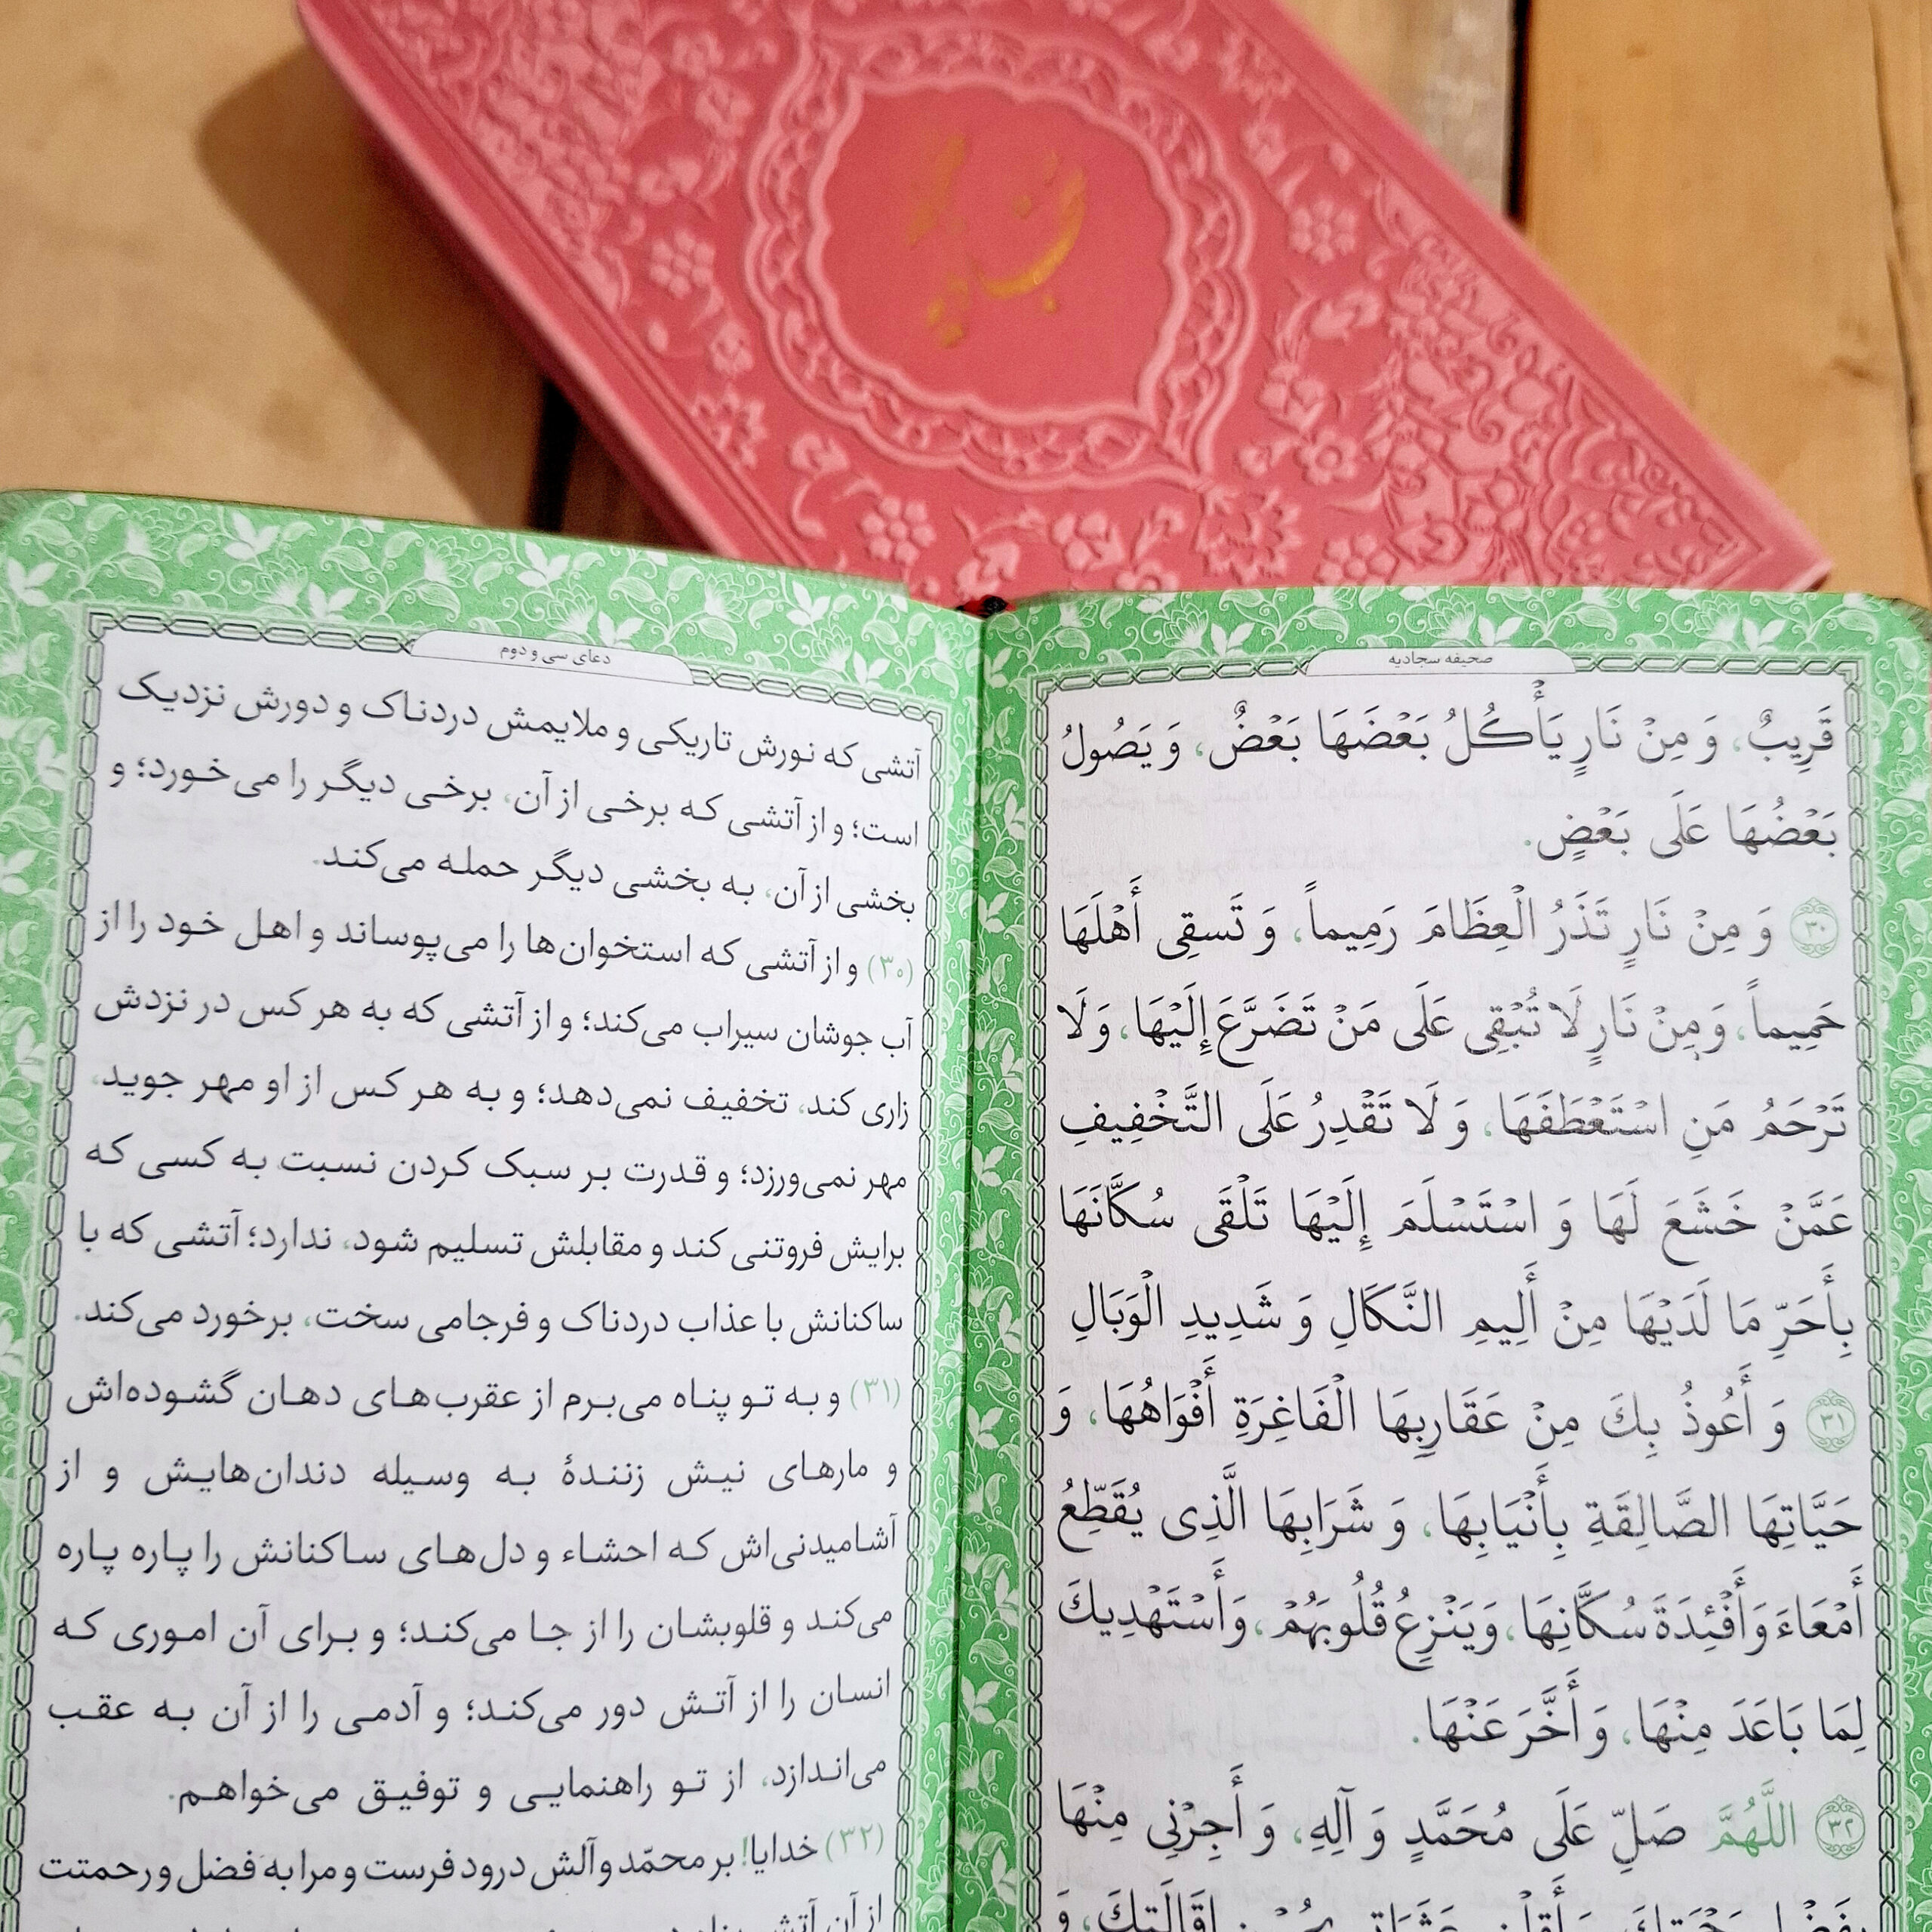 صحیفه سجادیه
قَرِيبٌ، وَ مِنْ نَارٍ يَأْكُلُ بَعْضَهَا بَعْضٌ، وَ يَصُولُ
بَعْضُهَا عَلَى بَعْضٍ.
۳۰ وَ مِنْ نَارٍ تَذَرُ الْعِظَامَ رَمِيماً، وَ تَسقِى أَهْلَهَا
حَمِيماً، وَ مِنْ نَارٍ لَا تُبْقِى عَلَى مَنْ تَضَرَّعَ إِلَيْهَا، وَ لَا
تَرْحَمُ مَنِ اسْتَعْطَفَهَا، وَ لَا تَقْدِرُ عَلَى التَّخْفِيفِ
عَمَّنْ خَشَعَ لَهَا وَ اسْتَسْلَمَ إِلَيْهَا تَلْقَى سُكَّانَهَا
بِأَحَرِّ مَا لَدَيْهَا مِنْ أَلِيمِ النَّكَالِ وَ شَدِيدِ الْوَبَالِ
۳۱ وَ أَعُوذُ بِكَ مِنْ عَقَارِبِهَا الْفَاغِرَةِ أَفْوَاهُهَا، وَ
حَيَّاتِهَا الصَّالِقَةِ بِأَنْيَابِهَا، وَ شَرَابِهَا الَّذِى يُقَطِّعُ
أَمْعَاءَ وَ أَفْئِدَةَ سُكَّانِهَا، وَ يَنْزِعُ قُلُوبَهُمْ، وَ أَسْتَهْدِيكَ
لِمَا بَاعَدَ مِنْهَا، وَ أَخَّرَ عَنْهَا.
۳۲ اللَّهُمَّ صَلِّ عَلَى مُحَمَّدٍ وَ آلِهِ، وَ أَجِرْنِى مِنْهَا
دعای سی و دوم
آتشی که نورش تاریکی و ملایمش دردناک و دورش نزدیک
است؛ و از آتشی که برخی از آن، برخی دیگر را می‌خورد؛ و
بخشی از آن، به بخشی دیگر حمله می‌کند.
(۳۰) و از آتشی که استخوان‌ها را می‌پوساند و اهل خود را از
آب جوشان سیراب می‌کند؛ و از آتشی که به هر کس در نزدش
زاری کند، تخفیف نمی‌دهد؛ و به هر کس از او مهر جوید،
مهر نمی‌ورزد؛ و قدرت بر سبک کردن نسبت به کسی که
برایش فروتنی کند و مقابلش تسلیم شود، ندارد؛ آتشی که با
ساکنانش با عذاب دردناک و فرجامی سخت، برخورد می‌کند.
(۳۱) و به تو پناه می‌برم از عقرب‌های دهان گشوده‌اش
و مارهای نیش زنندهٔ به وسیله دندان‌هایش و از
آشامیدنی‌اش که احشاء و دل‌های ساکنانش را پاره پاره
می‌کند و قلوبشان را از جا می‌کند؛ و برای آن اموری که
انسان را از آتش دور می‌کند؛ و آدمی را از آن به عقب
می‌اندازد، از تو راهنمایی و توفیق می‌خواهم.
(۳۲) خدایا! بر محمّد و آلش درود فرست و مرا به فضل و رحمتت